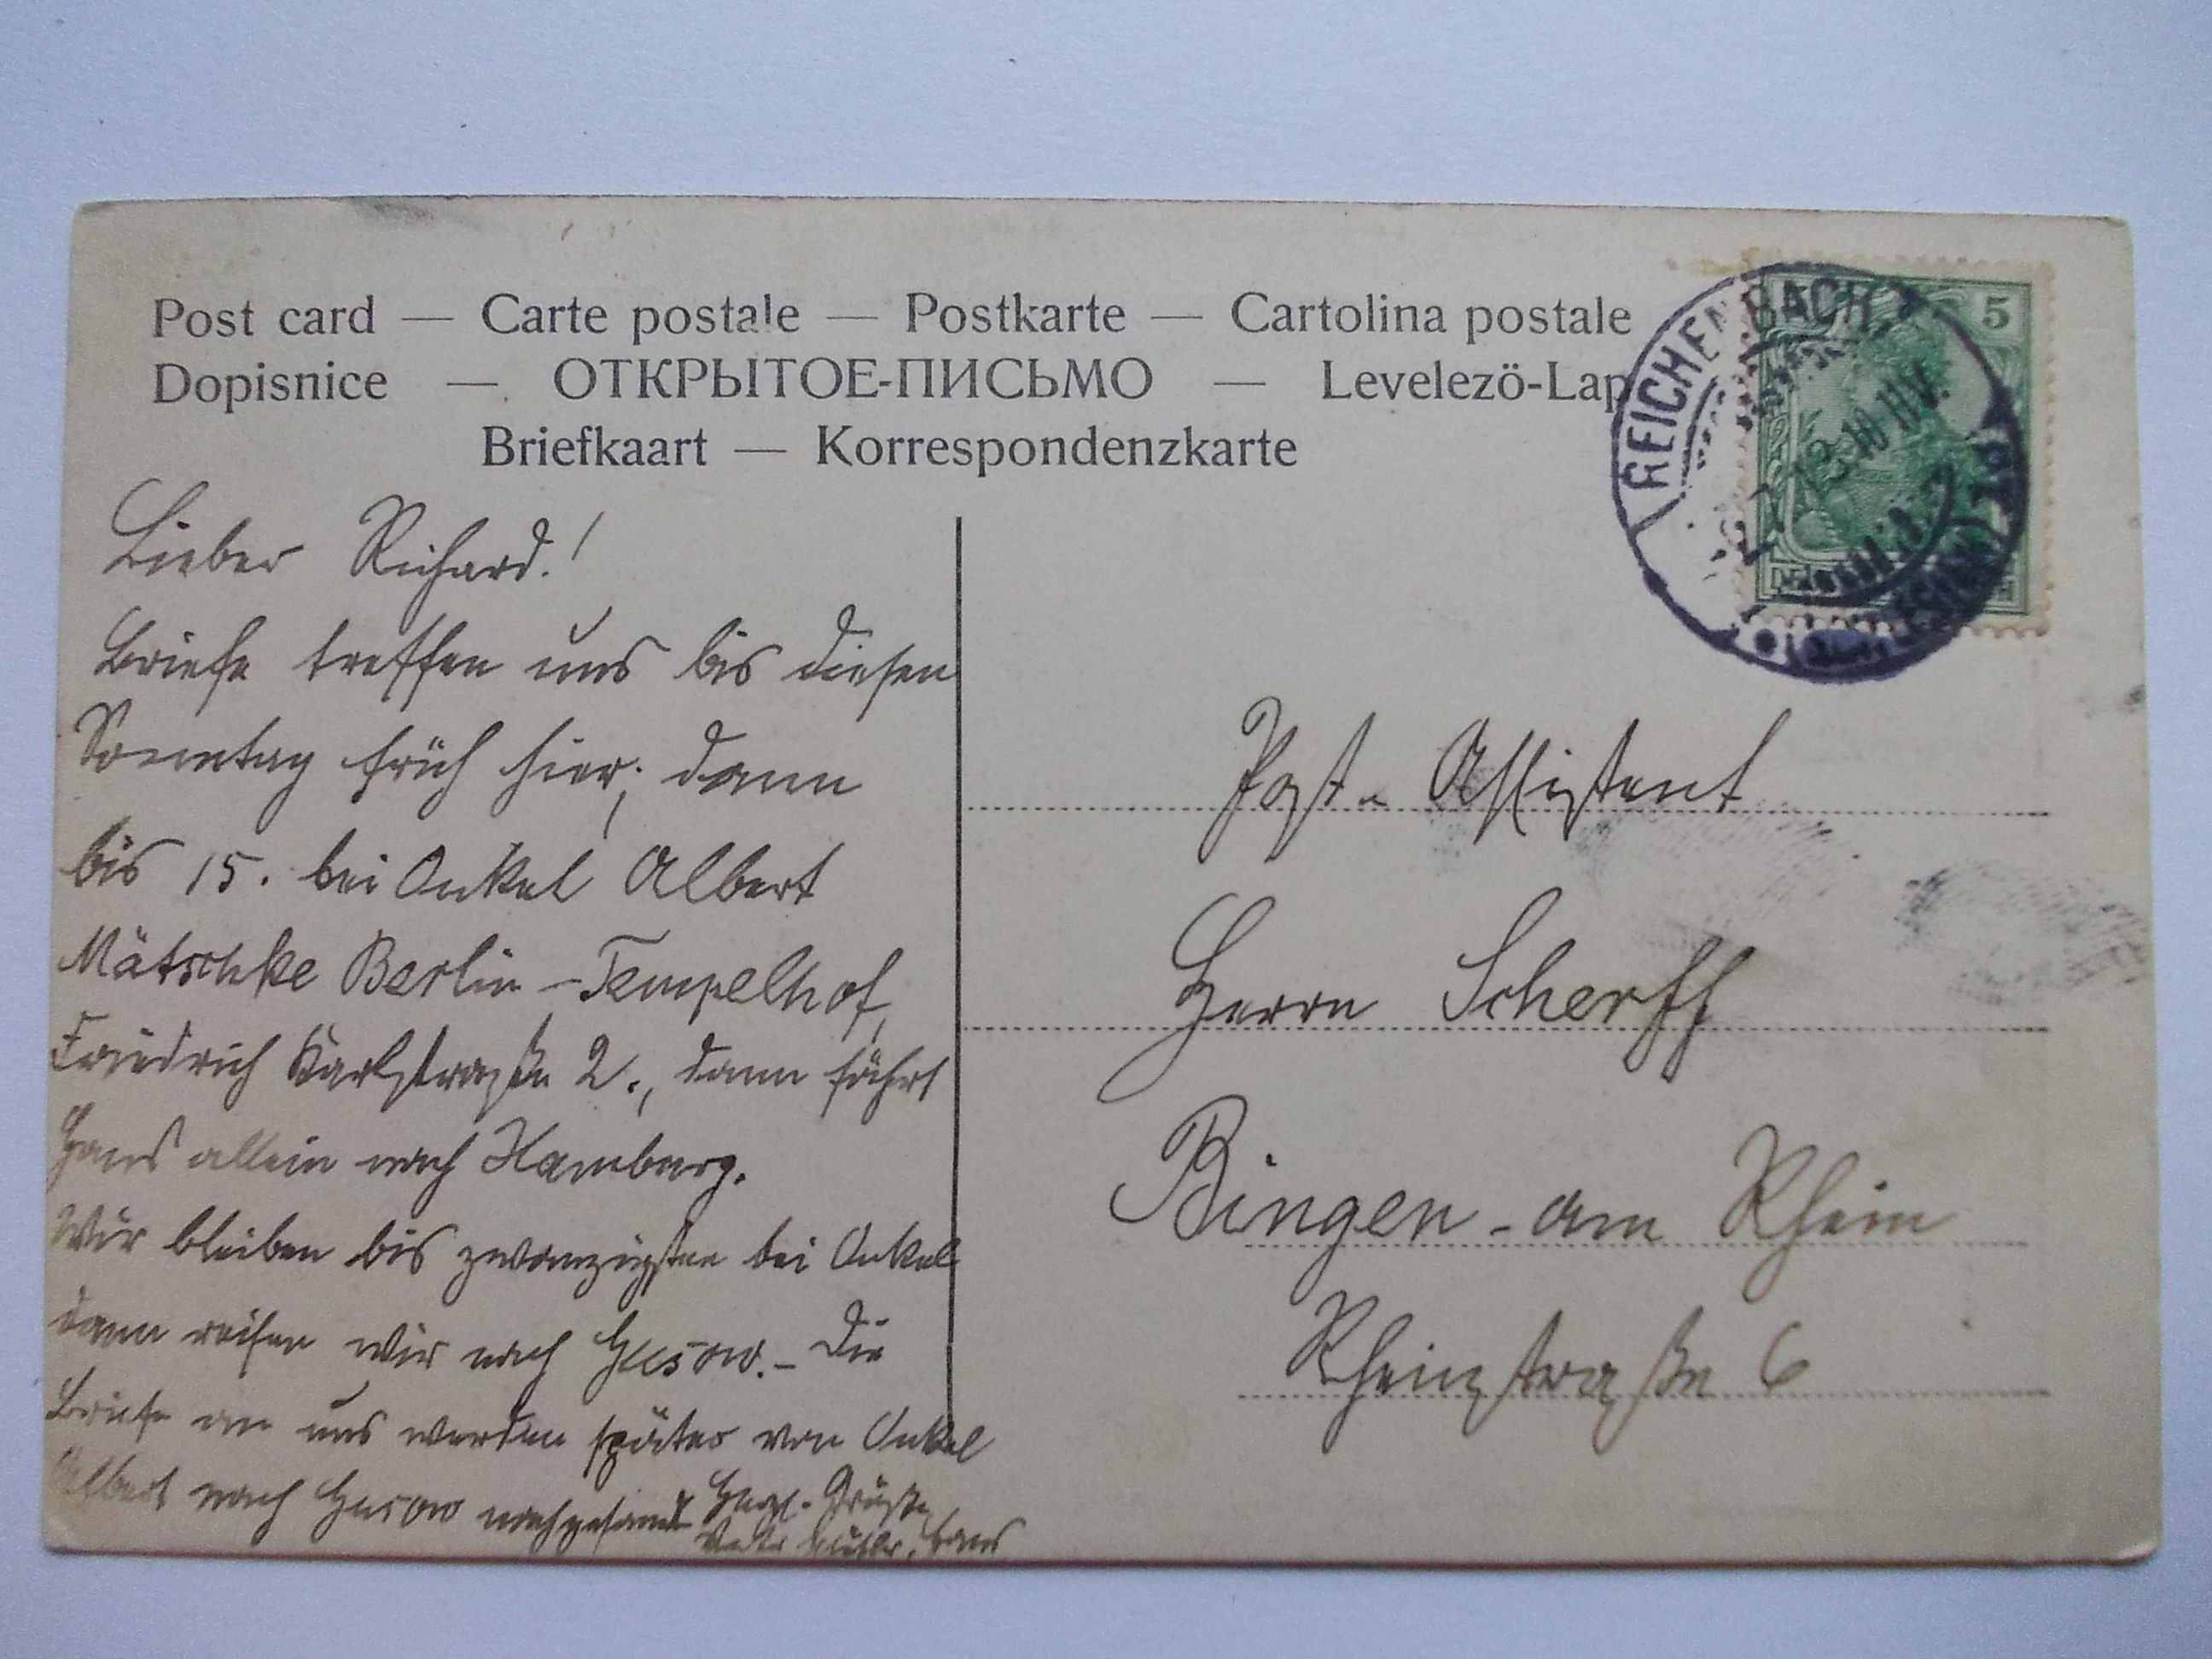 Post card — Carte postale — Postkarte — Cartolina postale
Dopisnice — ОТКРЫТОЕ-ПИСЬМО — Levelezö-Lap
Briefkaart — Korrespondenzkarte
REICHENBACH
5
Lieber Richard!
Briefe treffen uns bis diesen
Sonntag früh hier; dann
bis 15. bei Onkel Albert
Mätschke Berlin-Tempelhof,
Friedrich Karlstraße 2., dann fährt
Hans allein nach Hamburg.
Wir bleiben bis zwanzigsten bei Onkel
dann reisen wir nach Gusow. – Die
Briefe an uns werden später von Onkel
Albert nach Gusow nachgesandt Herzl. Grüße
Hans
Post-Assistent
Herrn Scherff
Bingen-am Rhein
Rheinstraße 6